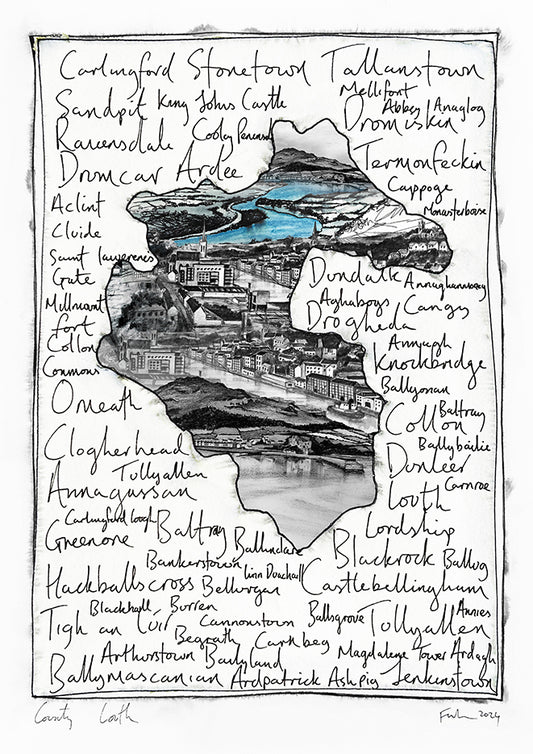 Carlingford Stonetown Tallanstown
Sandpit King Johns Castle Mellifont
Abbey Anaglog
Ravensdale Cooley Peninsula Dromiskin
Dromcar Ardee Termonfeckin
Aclint Cappoge
Cluide Monasterboice
Saint Lawerences
Gate
Dundalk
Millmount
fort
Aghaboys Cangy
Drogheda
Collon
Commons
Annagh
Knockbridge
Omeath Ballyonan
Collon Baltray
Clogherhead Ballybailie
Tullyallen Dunleer
Annagassan Carnroe
Louth
Carlingford Lough Lordship
Greenore Baltray
Blackrock Ballug
Bankerstown Linn Duachaill
Hackballscross Bellurgan Castlebellingham
Blackhall Burren Annies
Tigh an Iúir Cannonstown Ballsgrove Tullyallen
Begrath Carnbeg
Arthurstown Bailyland Magdalene Tower Ardagh
Ballymascanlan Ardpatrick Ashpig Jenkinstown
County Louth 2024